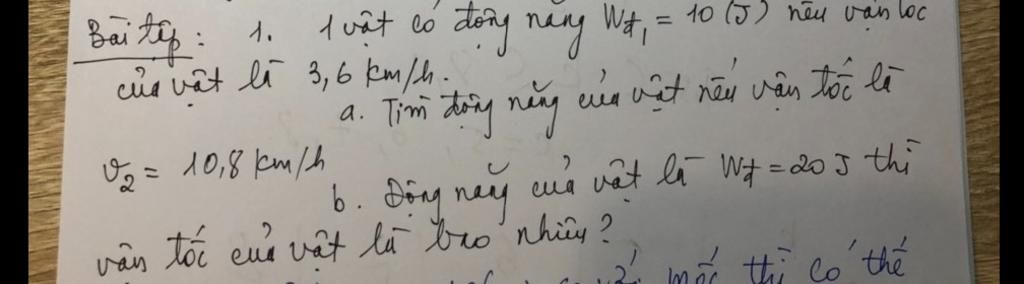 Bài tập: 1. 1 vật có động năng Wđ₁ = 10 (J) nếu vận tốc
của vật là 3,6 km/h.
a. Tìm động năng của vật nếu vận tốc là
v₂ = 10,8 km/h
b. Động năng của vật là Wđ = 20 J thì
vận tốc của vật là bao nhiêu?
mốc thì có thế